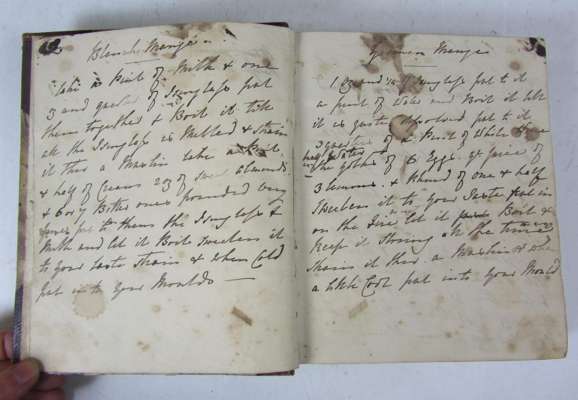 Blanch Mange
Take a Pint of Milk & one
3 and quarter of Isinglass put
them together & Boil it till
all the Isinglass is Melted & Strain
it thro a Muslin take a Pint
& half of Cream 23 of Sweet almonds
& 6 or 7 Bitter ones pounded very
put to them the Isinglass &
Milk and let it Boil sweeten it
to your taste Strain & when Cold
put into your Moulds
Mange
1 and of Isinglass put to it
a pint of Water and Boil it till
it is quite disolved put to it
of a Pint of White Wine
half Water
the Yolks of 6 Eggs. ye juice of
3 lemons. & Rhind of one & half
Sweeten it to your Taste put in
on the fire let it Boil &
keep it Stiring all the time
Strain it thro a Muslin & when
a little Cool put into your Mould